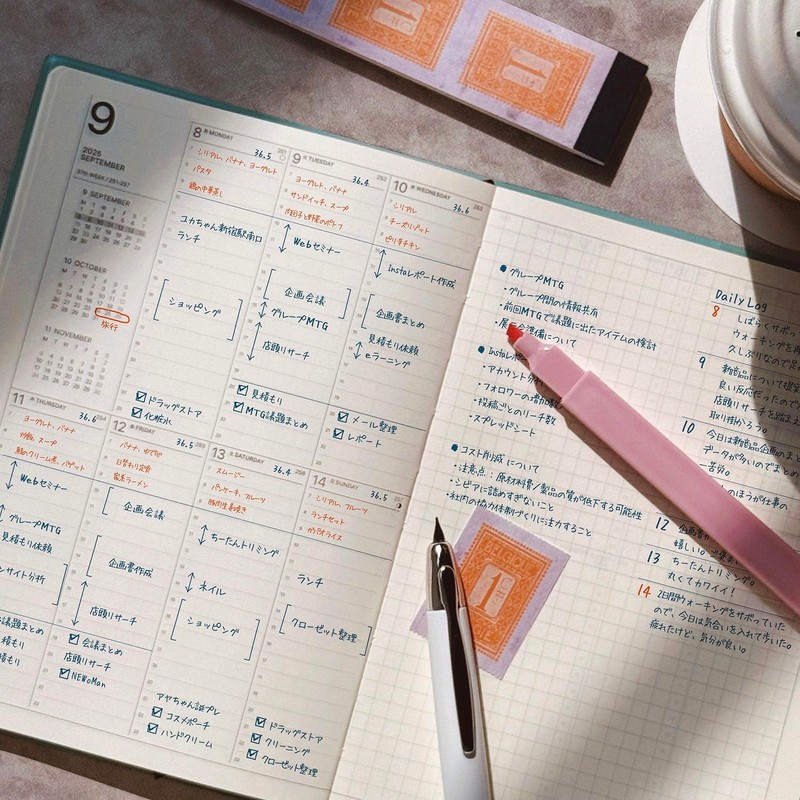 9
2025
SEPTEMBER
37th WEEK / 251-257
9 SEPTEMBER
10 OCTOBER
旅行
11 NOVEMBER
8 月 MONDAY
36.5
シリアル、バナナ、ヨーグルト
パスタ
鶏の中華蒸し
ユカちゃん新宿駅南口
ランチ
ショッピング
ドラッグストア
化粧水
9 火 TUESDAY
36.4
ヨーグルト、バナナ
サンドイッチ、スープ
肉団子と野菜のポトフ
Webセミナー
企画会議
グループMTG
店頭リサーチ
見積もり
MTG議題まとめ
10 水 WEDNESDAY
36.6
シリアル
チーズリゾット
ピリ辛チキン
Instaレポート作成
企画書まとめ
見積もり依頼
eラーニング
メール整理
レポート
11 木 THURSDAY
36.6
ヨーグルト、バナナ
スープ
Webセミナー
グループMTG
見積もり依頼
サイト分析
議題まとめ
積もり
積もり
12 金 FRIDAY
36.5
バナナ、ゆで卵
日替わり定食
家系ラーメン
企画会議
企画書作成
店頭リサーチ
会議まとめ
店頭リサーチ
NEWoMan
13 土 SATURDAY
36.4
スムージー
パンケーキ、フルーツ
豚肉生姜焼き
ちーたんトリミング
ネイル
ショッピング
アヤちゃん誕プレ
コスメポーチ
ハンドクリーム
14 日 SUNDAY
36.5
シリアル、フルーツ
ランチセット
ガパオライス
ランチ
クローゼット整理
ドラッグストア
クリーニング
クローゼット整理
●グループMTG
・グループ間の情報共有
・前回MTGで議題に出たアイテムの検討
会準備について
●Instaレポ
・アカウント分析
・フォロワーの増加数
・投稿ごとのリーチ数
・スプレッドシート
●コスト削減について
・注意点：原材料費/製品の質が低下する可能性
・シビアに詰めすぎないこと
・社内の協力体制づくりに注力すること
Daily Log
8 しばらくサボっ
ウォーキングを再
久しぶりなので足
9 新商品について提案
良い反応だったので
店頭リサーチを始ま
取り掛かろう。
10 今日は新商品企画のま
データが多いのでまとめ
一苦労。
のほうが仕事の
12 企画書
嬉しい。
13 ちーたんトリミング。
丸くてカワイイ！
14 2日間ウォーキングをサボっていた
ので、今日は気合いを入れて歩いた。
疲れたけど、気分が良い。
1